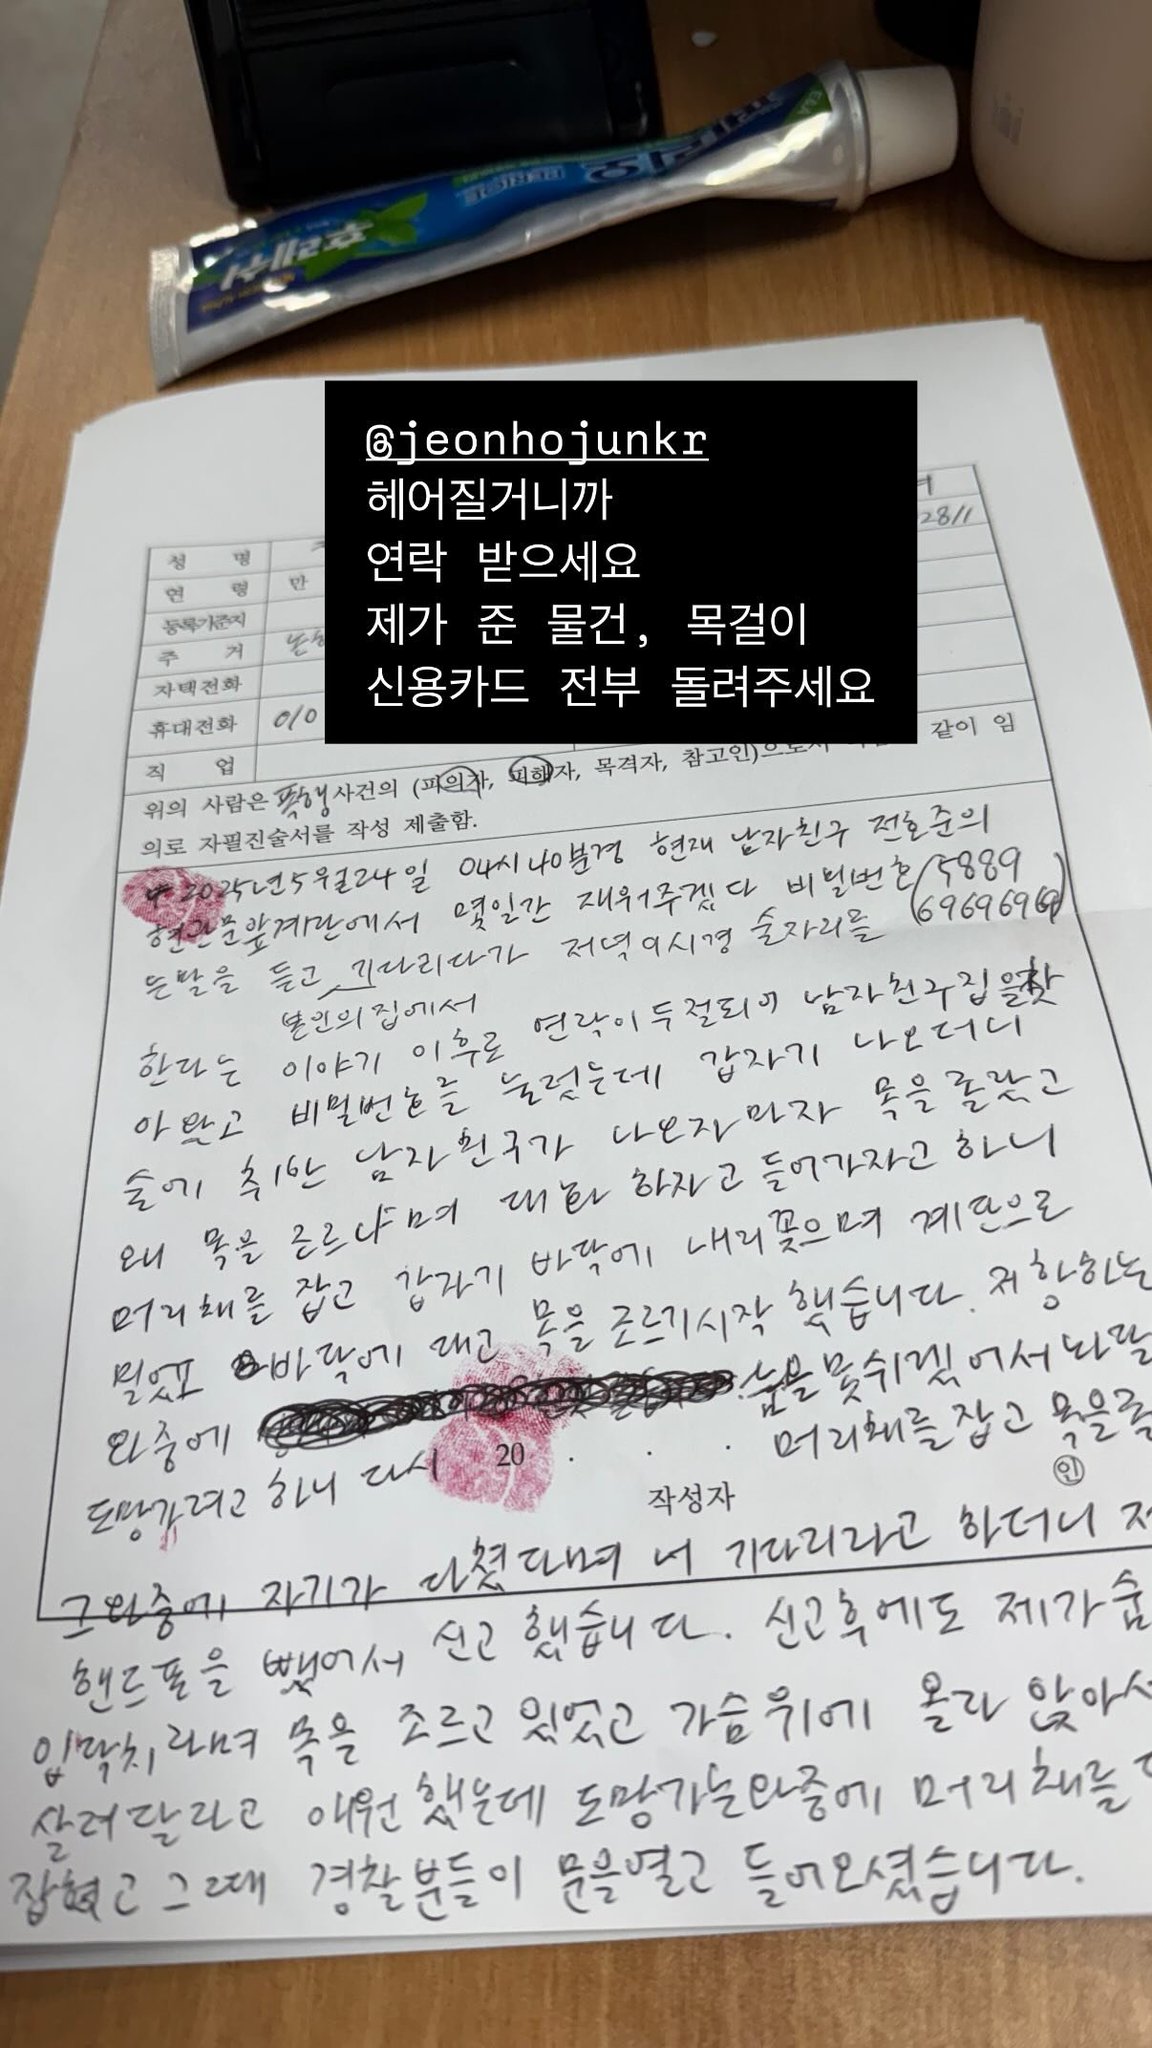 페리오
후레쉬
@jeonhojunkr
헤어질거니까
연락 받으세요
제가 준 물건, 목걸이
신용카드 전부 돌려주세요
2811
성 명
연 령 만
등록기준지
주 거
자택전화
휴대전화 010
직 업
위의 사람은 폭행사건의 (피의자, 피해자, 목격자, 참고인)으로서 같이 임
의로 자필진술서를 작성 제출함.
2025년 5월 24일 04시 40분경 현재 남자친구 전호준의
현관문앞계단에서 몇일간 재워주겠다 비밀번호 (5889
69696969)
는말을 듣고 기다리다가 저녁 9시경 술자리를
본인의 집에서
한다는 이야기 이후로 연락이 두절되어 남자친구집을찾
아 왔고 비밀번호를 눌렀는데 갑자기 나오더니
술에 취한 남자친구가 나오자마자 목을 졸랐고
왜 목을 조르냐며 대화 하자고 들어가자고 하니
머리채를 잡고 갑자기 바닥에 내리꽂으며 계단으로
밀었고 바닥에 대고 목을 조르기시작 했습니다. 저항하는
와중에 숨을못쉬겠어서 놔달
도망가려고 하니 다시 머리채를잡고 목을졸
20 . . .
작성자 인
그와중에 자기가 다쳤다며 너 기다리라고 하더니
핸드폰을 뺏어서 신고 했습니다. 신고후에도 제가 숨
입닥치라며 목을 조르고 있었고 가슴위에 올라 앉아서
살려달라고 애원 했는데 도망가는와중에 머리채를
잡혔고 그때 경찰분들이 문을열고 들어오셨습니다.